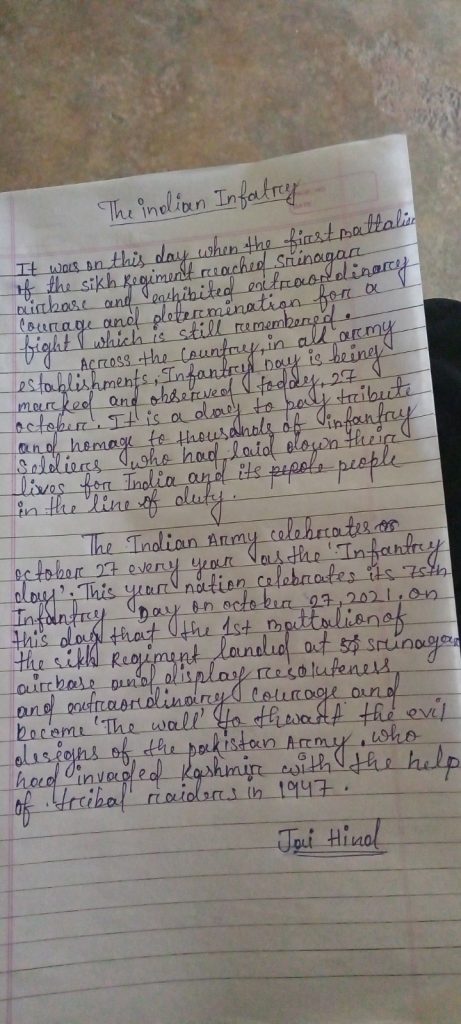 The indian Infatrey
It was on this day when the first Battalion
of the sikh Regiment reached Srinagar
airbase and exhibited extraordinarey
courage and determination for a
fight which is still remembered.
Across the country, in all army
establishments, Infantry Day is being
marked and observed today, 27
october. It is a day to pay tribute
and homage to thousands of infantry
soldiers who had laid down their
lives for India and its people
in the line of duty.
The Indian Army celebrates
october 27 every year as the 'Infantry
day'. This year nation celebrates its 75th
Infantry Day on october 27, 2021. on
this day that the 1st Battalion of
the sikh Regiment landed at srinagar
airbase and display resoluteness
and extraordinary courage and
become 'The wall' to thwart the evil
designs of the pakistan Army. who
had invaded Kashmir with the help
of tribal raiders in 1947.
Jai Hind